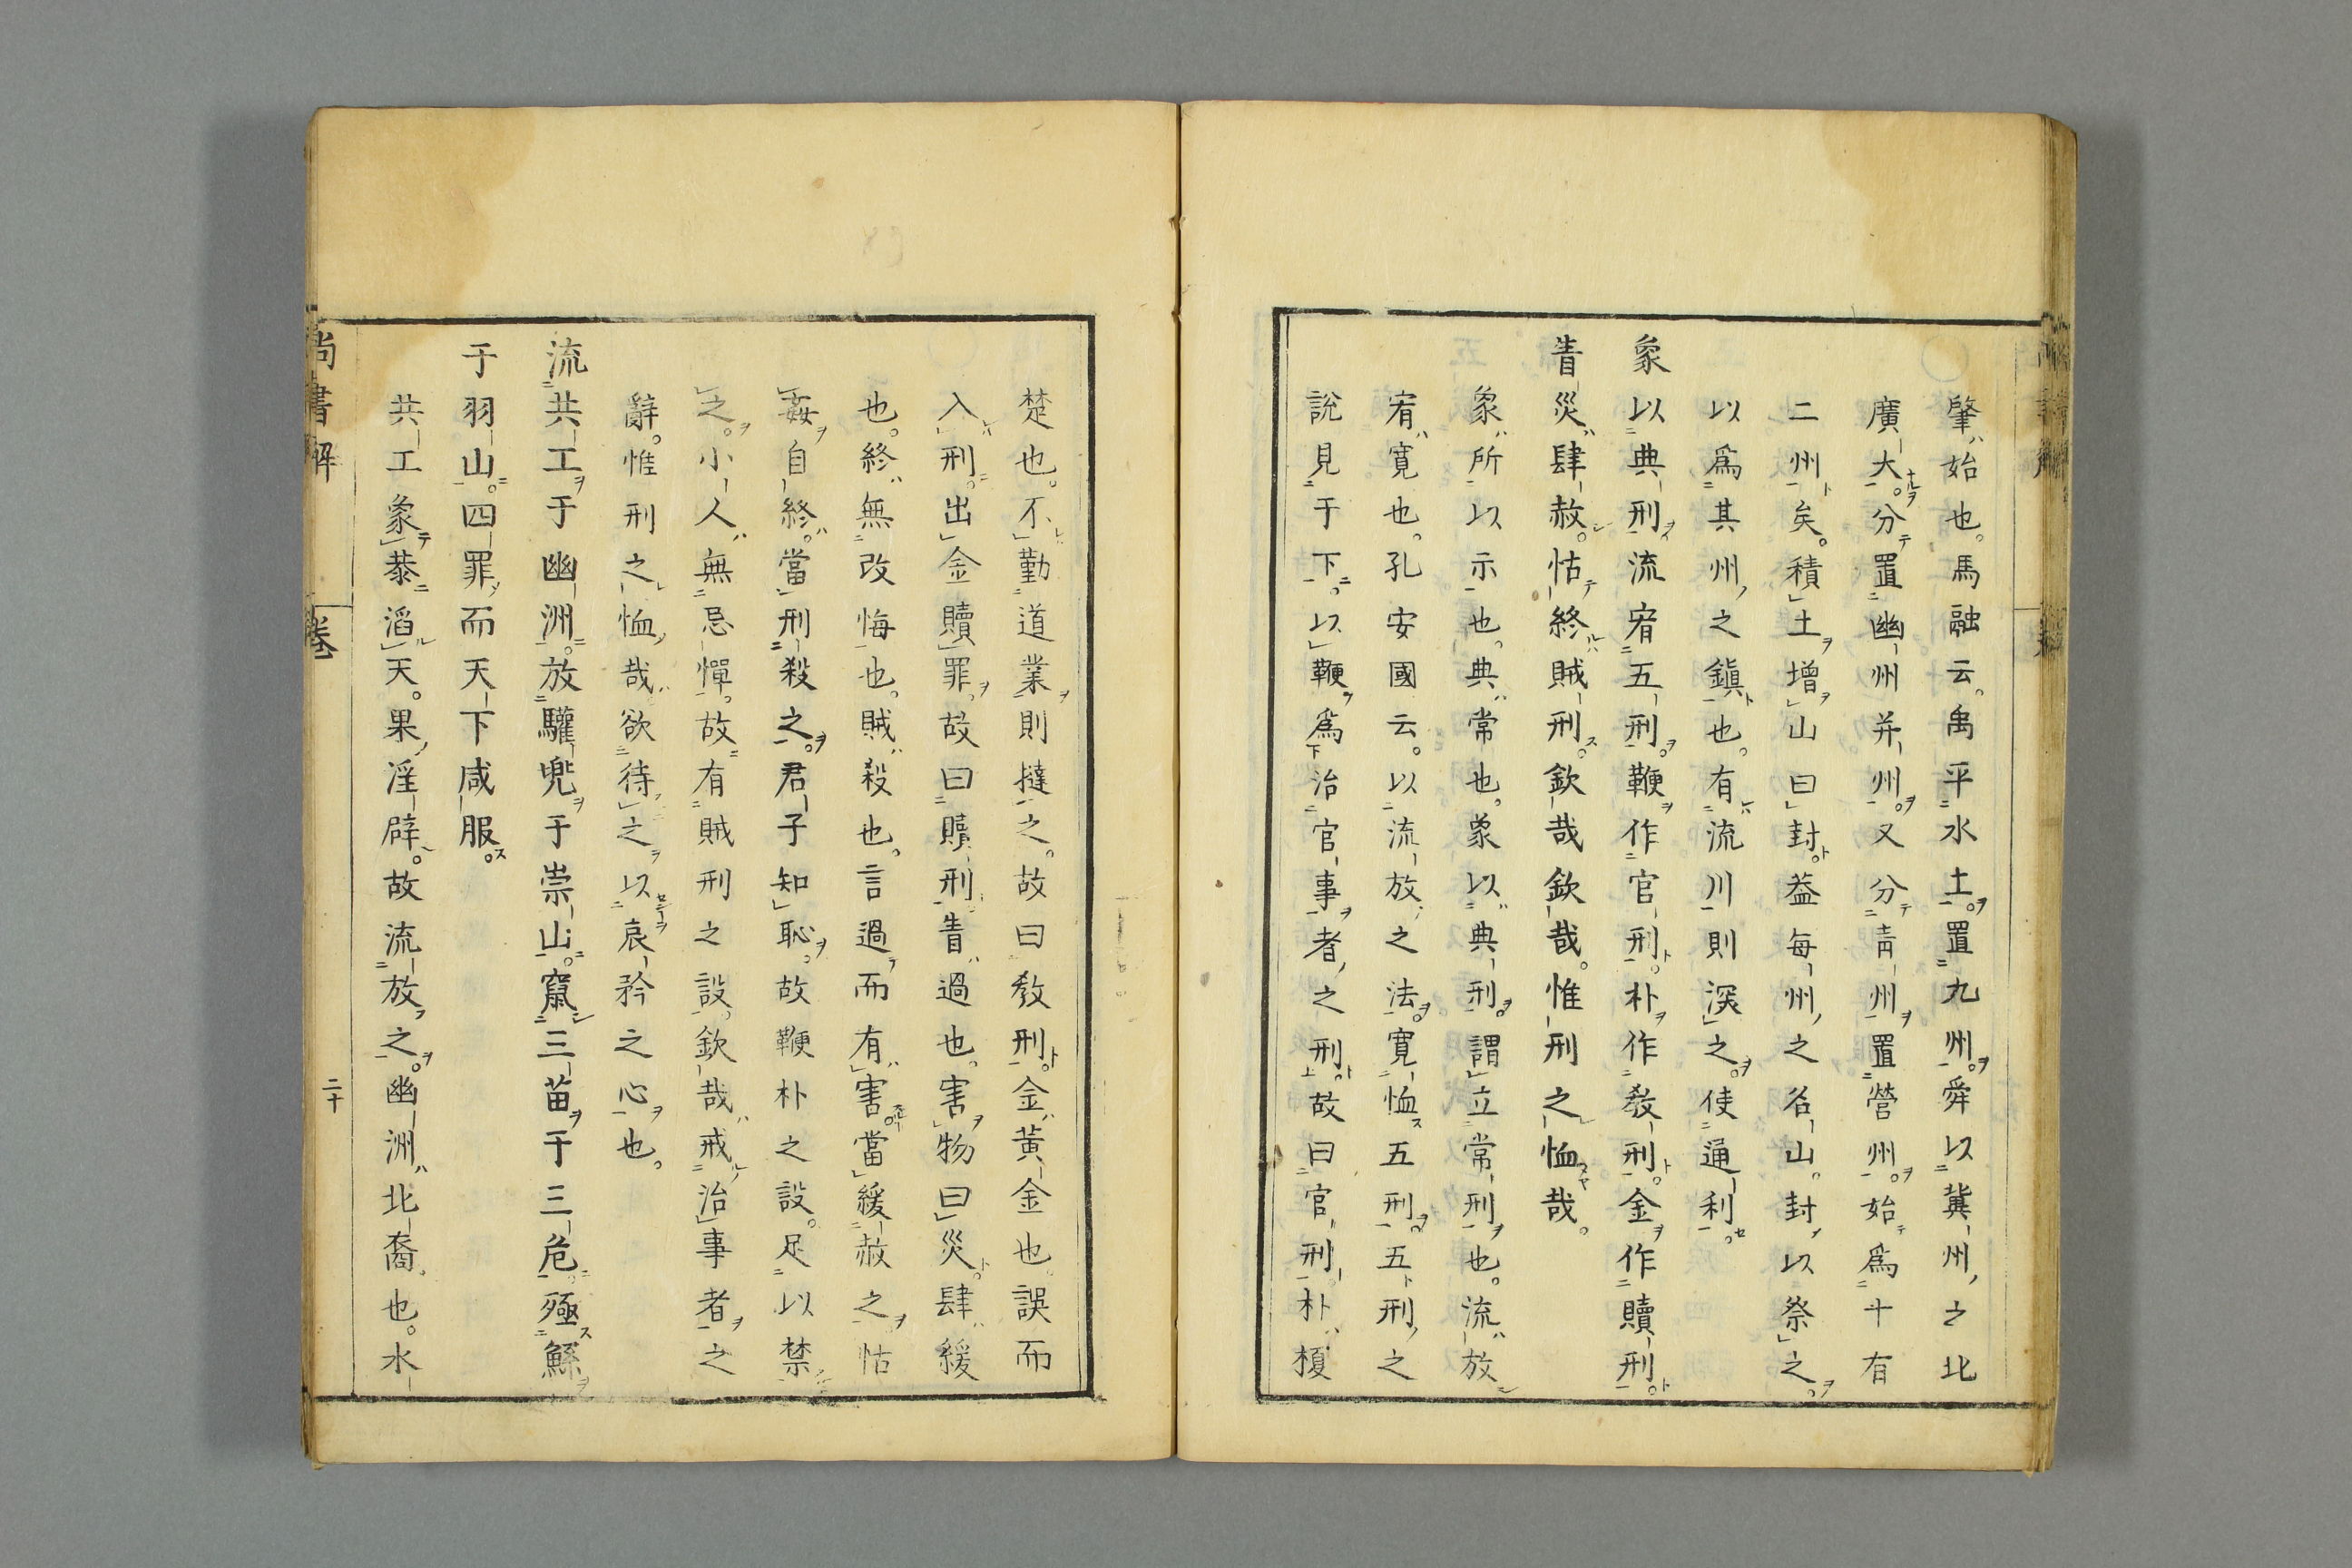 肇始也。馬融云。禹平水土。置九州。舜以冀州之北
廣大。分置幽州并州。又分青州置營州。始爲十有
二州矣。積土增山曰封。蓋每州之名山。封以祭之。
以爲其州之鎭也。有流川則深之。使通利。
象以典刑流宥五刑。鞭作官刑。朴作敎刑。金作贖刑。
眚災肆赦。怙終賊刑。欽哉欽哉。惟刑之恤哉。
象所以示也。典常也。象以典刑。謂立常刑也。流放
宥寛也。孔安國云。以流放之法。寛恤五刑。五刑之
說見于下。以鞭爲治官事者之刑。故曰官刑。朴榎
楚也。不勤道業則撻之。故曰敎刑。金黃金也。誤而
入刑。出金贖罪。故曰贖刑眚過也。害物曰災。肆緩
也。終無改悔也。賊殺也。言過而有害。當緩赦之。怙
姦自終。當刑殺之。君子知恥。故鞭朴之設。足以禁
之。小人無忌憚。故有賊刑之設。欽哉戒治事者之
辭。惟刑之恤哉欲待之以哀矜之心也。
流共工于幽洲。放驩兜于崇山。竄三苗于三危。殛鯀
于羽山。四罪而天下咸服。
共工象恭滔天。果淫辟。故流放之。幽洲北裔也。水
尚書解
卷
二十